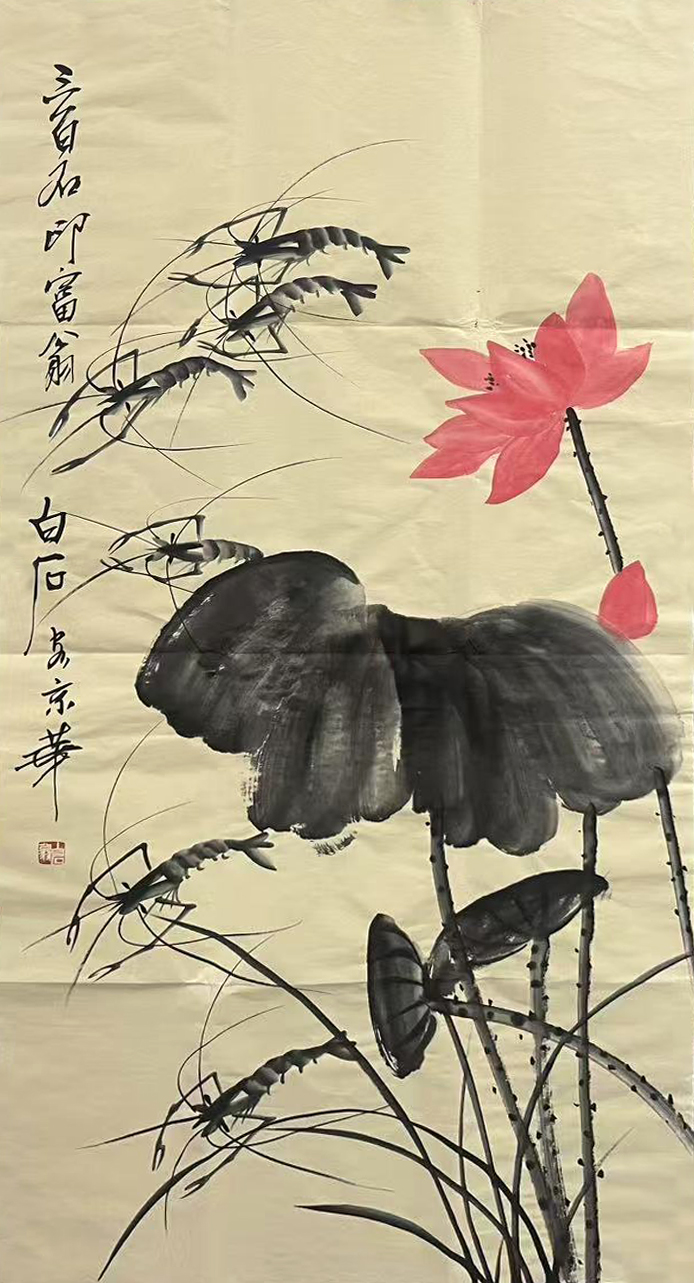 三百石印富翁
白石
客京華